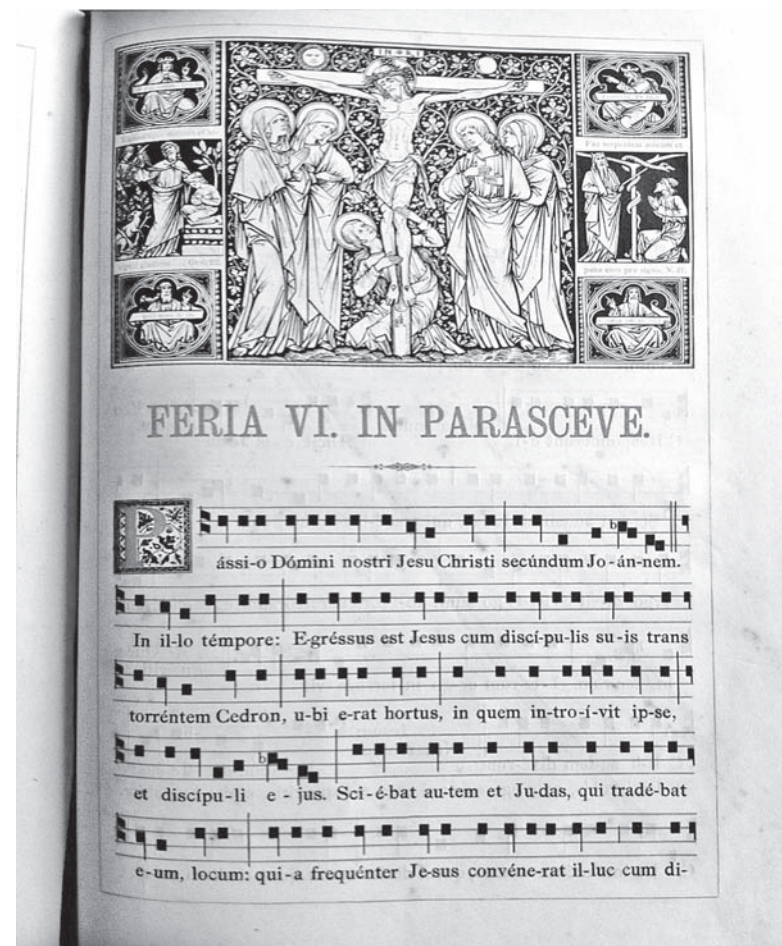 INRI
FERIA VI. IN PARASCEVE.
Pássi-o Dómini nostri Jesu Christi secúndum Jo-án-nem.
In il-lo témpore: E-gréssus est Jesus cum discí-pu-lis su-is trans
torréntem Cedron, u-bi e-rat hortus, in quem in-tro-í-vit ip-se,
et discípu-li e-jus. Sci-é-bat au-tem et Ju-das, qui tradé-bat
e-um, locum: qui-a frequénter Je-sus convéne-rat il-luc cum di-